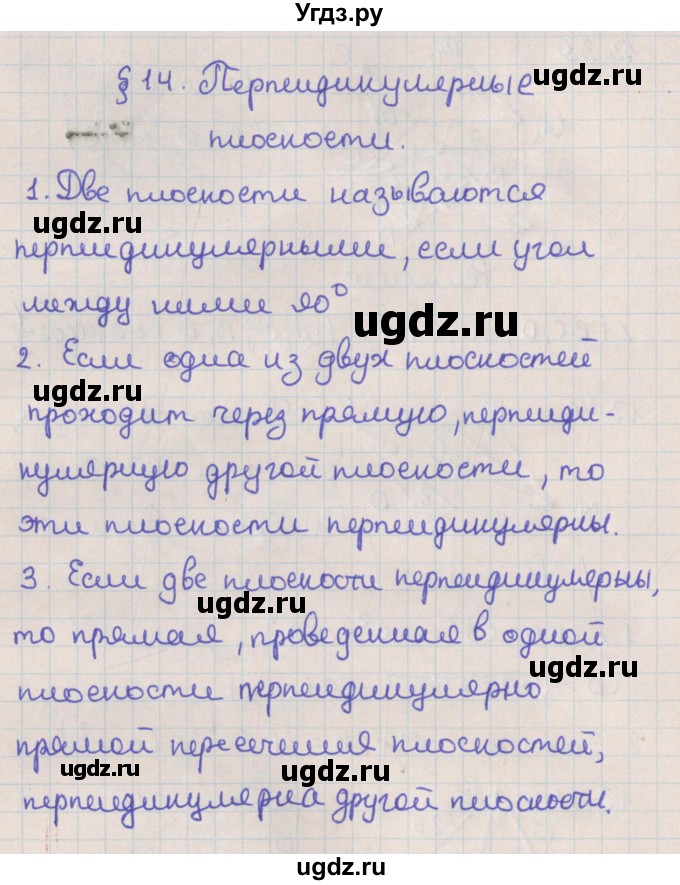 Угдз.ру
§ 14. Перпендикулярные
плоскости.
1. Две плоскости называются
ugdz.ru
перпендикулярными, если угол
между ними 90°
ugdz.ru
2. Если одна из двух плоскостей
ugdz.ru
проходит через прямую, перпенди-
кулярную другой плоскости, то
эти плоскости перпендикулярны.
3. Если две плоскости перпендикулярны,
ugdz.ru
то прямая, проведенная в одной
ugdz.ru
плоскости перпендикулярно
прямой пересечения плоскостей,
ugdz.ru ugdz.ru
перпендикулярна другой плоскости.
ugdz.ru